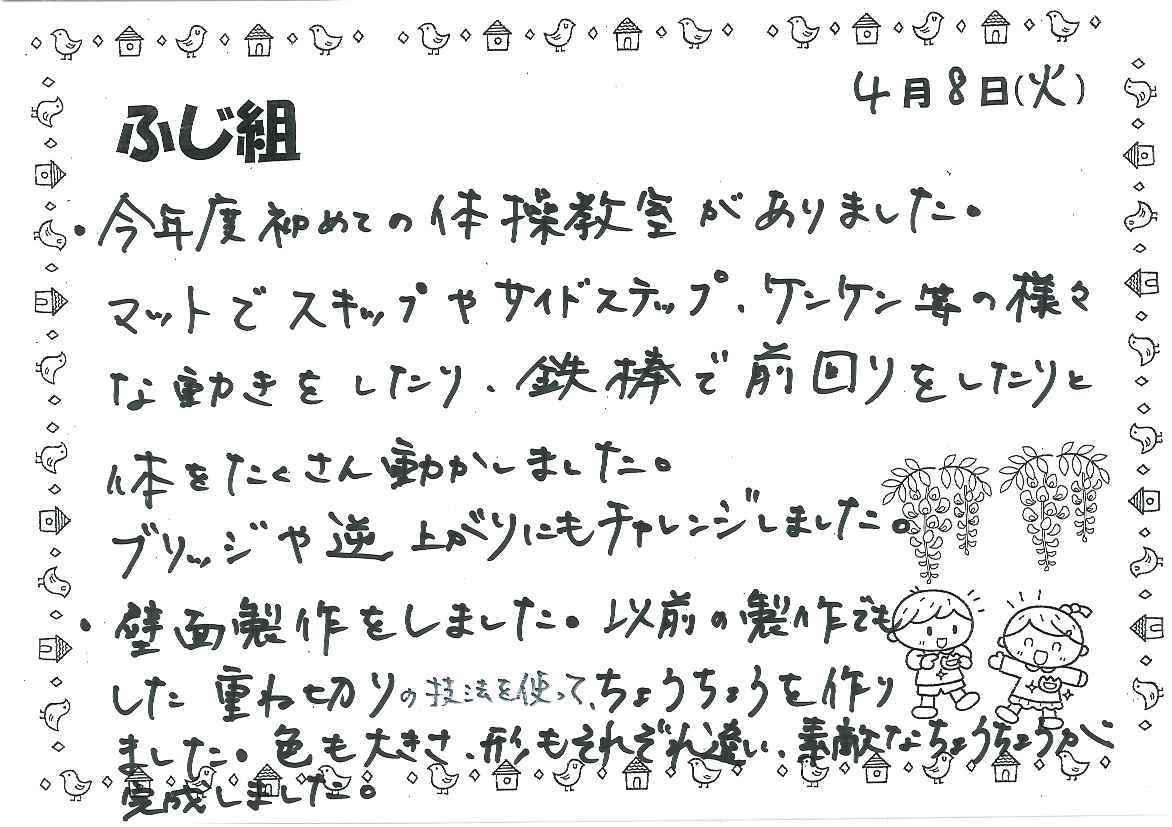 4月8日(火)
ふじ組
・今年度初めての体操教室がありました。
マットでスキップやサイドステップ、ケンケン等の様々
な動きをしたり、鉄棒で前回りをしたりと
体をたくさん動かしました。
ブリッジや逆上がりにもチャレンジしました。
・壁面製作をしました。以前の製作でも
した重ね切りの技法を使って、ちょうちょうを作り
ました。色も大きさ、形もそれぞれ違い、素敵なちょうちょうが
完成しました。